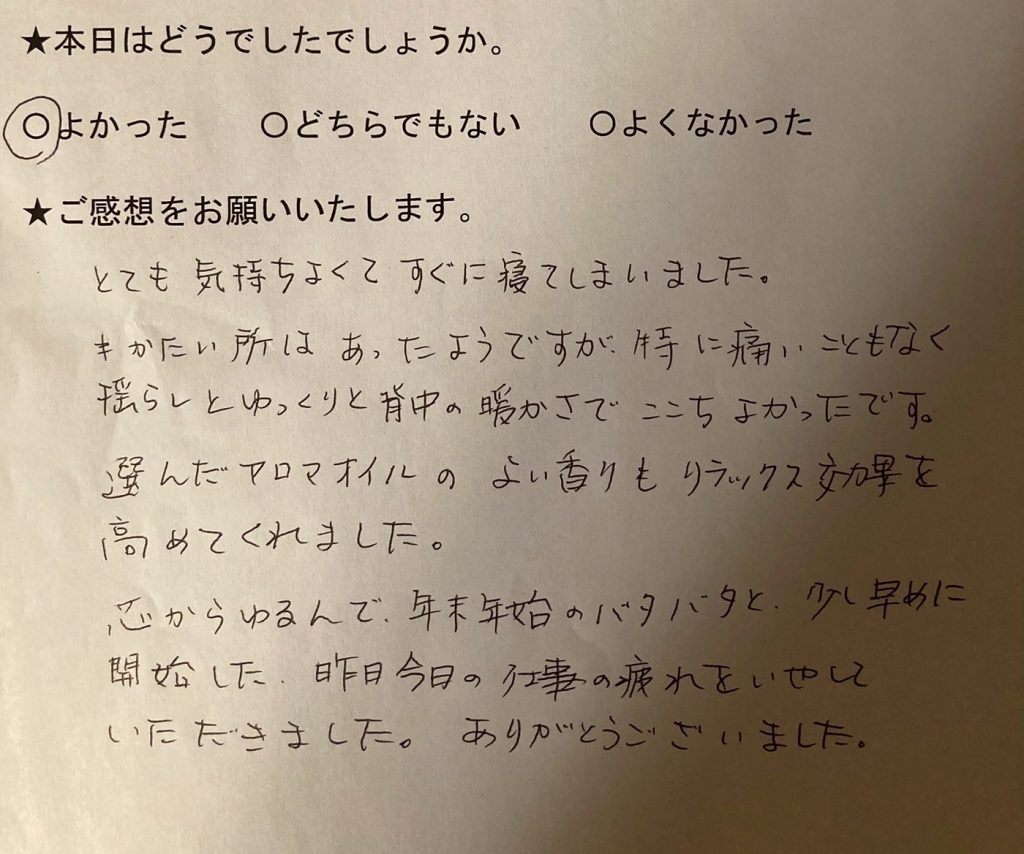 ★本日はどうでしたでしょうか。
○よかった ○どちらでもない ○よくなかった
★ご感想をお願いいたします。
とても気持ちよくてすぐに寝てしまいました。
かたい所はあったようですが、特に痛いこともなく
揺らしとゆっくりと背中の暖かさでここちよかったです。
選んだアロマオイルのよい香りもリラックス効果を
高めてくれました。
芯からゆるんで、年末年始のバタバタと、少し早めに
開始した、昨日今日の仕事の疲れをいやして
いただきました。ありがとうございました。